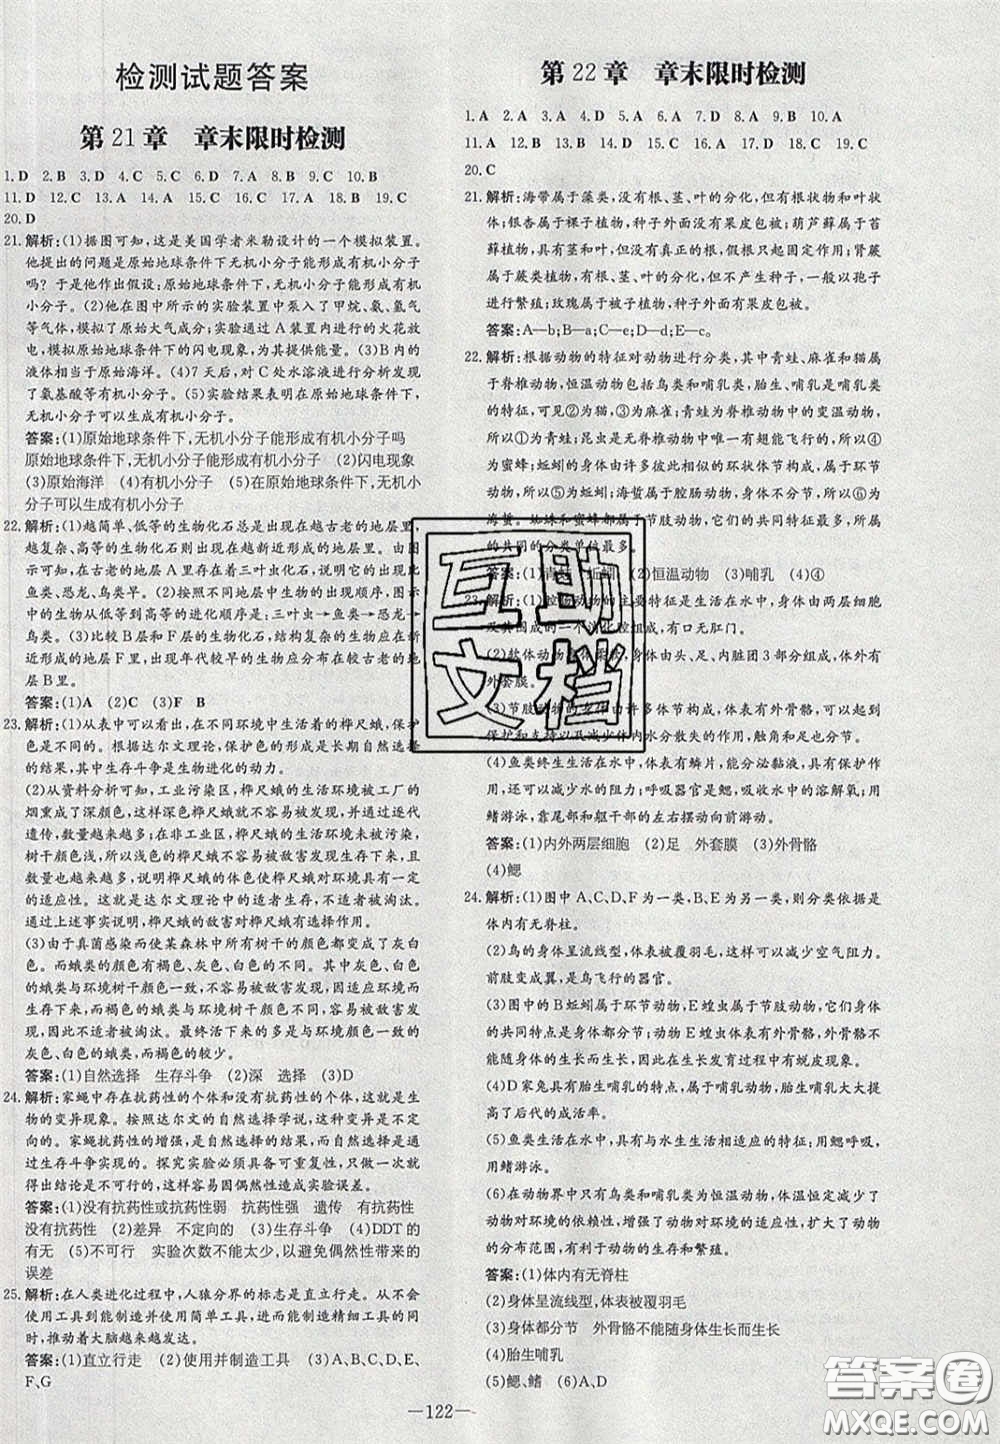 检测试题答案
第21章 章末限时检测
1.D 2.B 3.D 4.C 5.D 6.A 7.B 8.D 9.C 10.B
11.D 12.C 13.A 14.A 15.C 16.D 17.B 18.D 19.C
20.D
21.解析:(1)据图可知，这是美国学者米勒设计的一个模拟装置。
他提出的问题是原始地球条件下无机小分子能形成有机小分子
吗？于是他作出假设：原始地球条件下，无机小分子能形成有机
小分子。(2)他在图中所示的实验装置中泵入了甲烷、氨、氢气
等气体，模拟了原始大气成分；实验通过A装置内进行的火花放
电，模拟原始地球条件下的闪电现象，为其提供能量。(3)B内的
液体相当于原始海洋。(4)7天后，对C处水溶液进行分析发现
了氨基酸等有机小分子。(5)实验结果表明在原始地球条件下，
无机小分子可以生成有机小分子。
答案:(1)原始地球条件下,无机小分子能形成有机小分子吗
原始地球条件下,无机小分子能形成有机小分子 (2)闪电现象
(3)原始海洋 (4)有机小分子 (5)在原始地球条件下,无机小
分子可以生成有机小分子
22.解析:(1)越简单、低等的生物化石总是出现在越古老的地层里，
越复杂、高等的生物化石则出现在越新近形成的地层里。由图
示可知，在古老的地层A里存在着三叶虫化石，生存年代比
鱼类、恐龙、鸟类早。(2)按照图中生物化石的出现顺序，图中生
物的从低等到高等的进化顺序是：三叶虫→鱼类→恐龙→
鸟类。(3)比较B层和F层的生物化石，结构复杂的生物应在新
近形成的地层F里，出现年代较早的生物应分布在较古老的地
层B里。
答案:(1)A (2)C (3)F B
23.解析:(1)从表中可以看出，在不同环境中生活着的桦尺蛾，保护
色是不同的。根据达尔文理论，保护色的形成是长期自然选择
的结果，其中生存斗争是生物进化的动力。
(2)从资料分析可知，工业污染区，桦尺蛾的生活环境被工厂的
烟熏成了深颜色，这时深颜色的桦尺蛾就不容易被敌害发现而逐代
遗传，数量越来越多；在非工业区，桦尺蛾的生活环境未被污染，
树干颜色浅，所以浅色的桦尺蛾不容易被敌害发现生存下来，从而
数量越来越多。与环境颜色一致的桦尺蛾不容易被敌害发现而
生存下来，这是达尔文理论中的适者生存，不适者被淘汰。
通过上述事实说明，桦尺蛾的敌害对桦尺蛾有选择作用。
(3)由于真菌感染而使某森林中所有树干的颜色都变成了灰白
色。而蛾类的颜色有褐色、灰色、白色的不同。其中，灰色、白色
的蛾类与环境颜色一致，不容易被敌害发现而生存下来，数量越
来越多；褐色的蛾类与环境颜色不同，容易被敌害发现，数量越
来越少，甚至被淘汰。最终活下来的多是与环境颜色一致的
灰色、白色的蛾类，而褐色的较少。
答案:(1)自然选择 生存斗争 (2)深 选择 (3)D
24.解析:家蝇中存在抗药性的个体和没有抗药性的个体，这是生
物的变异现象。按照达尔文的自然选择学说，这种变异是不定
向的。家蝇抗药性的增强，是自然选择的结果，而自然选择是在
生存斗争中实现的。探究实验必须多次进行，只进行一次实验就
得出结论是不行的，这样容易因偶然性造成实验误差。
答案:(1)没有抗药性或抗药性弱 抗药性强 遗传 有抗药性
没有抗药性 (2)差异 不定向的 (3)生存斗争 (4)DDT的
有无 (5)不可行 实验次数不能太少,以避免偶然性带来的
误差
25.解析:在人类进化过程中，人猿分界的标志是直立行走。从不会
使用工具到能制造并使用简单工具，进而能制造精细工具的同
时，推动着大脑越来越发达。
答案:(1)直立行走 (2)使用并制造工具 (3)A、B、C、D、E、
F、G
第22章 章末限时检测
1.A 2.A 3.A 4.C 5.A 6.A 7.C 8.B 9.C 10.A
11.A 12.D 13.A 14.D 15.C 16.B 17.A 18.D 19.C
20.C
21.解析:海带属于藻类，没有根、茎、叶的分化，但有根状物和叶状
体;银杏属于裸子植物，种子外面没有果皮包被；葫芦藓属于苔
藓植物，有茎和叶的分化，但没有真正的根，假根起固定作用；肾蕨
属于蕨类植物，有根、茎、叶的分化，但不产生种子，一般以孢子
进行繁殖；玫瑰属于被子植物，种子外面有果皮包被。
答案:A—b;B—a;C—e;D—d;E—c。
22.解析:根据动物的特征对动物进行分类，其中青蛙、麻雀和猫属
于脊椎动物，恒温动物包括鸟类和哺乳类，胎生、哺乳是哺乳类
的特征，可见②为猫，③为麻雀；青蛙为脊椎动物中的变温动物，
所以①为青蛙；昆虫是无脊椎动物中唯一有翅能飞行的，所以④
为蜜蜂；蚯蚓的身体由许多彼此相似的环状体节构成，属于环节
动物，所以⑤为蚯蚓；海蜇属于腔肠动物，生活在水中，所以⑥为
海蜇。蜘蛛和蜜蜂都属于节肢动物，它们的共同特征最多，它们
的共同的分类单位最多。
答案:(1)青蛙 蚯蚓 (2)恒温动物 (3)哺乳 (4)④
23.解析:(1)腔肠动物的主要特征是生活在水中，身体由两层细胞
及其围成的一个消化腔组成，有口无肛门。
(2)软体动物身体柔软，身体由头、足、内脏团3部分组成，体表有
外套膜。
(3)节肢动物的身体由许多体节构成，体表有外骨骼，可以起到
保护和支持以及减少体内水分散失的作用，触角和足也分节。
(4)鱼类终生生活在水中，体表有鳞片，能分泌黏液，具有保护作
用，还可以减少水的阻力；呼吸器官是鳃，吸收水中的溶解氧；用
鳍游泳，靠尾部和躯干部的左右摆动向前游动。
答案:(1)内外两层细胞 (2)足 外套膜 (3)外骨骼
(4)鳃
24.解析:(1)图中A、C、D、F为一类，B、E为另一类，则分类依据是
体内有无脊柱。
(2)鸟的身体呈流线型，体表被覆羽毛，这样可以减少空气阻力。
前肢变成翼，是鸟飞行的器官。
(3)图中的B蚯蚓属于环节动物，E蝗虫属于节肢动物，它们身体
的共同特点是身体都分节；动物E蝗虫体表有外骨骼，外骨骼不
能随身体的生长而生长，因此在发育过程中有蜕皮现象。
(4)D家兔具有胎生哺乳的特点，属于哺乳动物，胎生哺乳大大提
高了后代的成活率。
(5)鱼类生活在水中，具有与水生生活相适应的特征：用鳃呼吸，
用鳍游泳。
(6)在动物界中只有鸟类和哺乳类为恒温动物，恒温减少了
动物对环境的依赖性，增强了动物对环境的适应性，扩大了动物
的分布范围，有利于动物的生存和繁殖。
答案:(1)体内有无脊柱
(2)身体呈流线型,体表被覆羽毛
(3)身体都分节 外骨骼不能随身体生长而生长
(4)胎生哺乳
(5)鳃、鳍 (6)A、D
—122—
互助
文档
答案圈
MXQE.COM